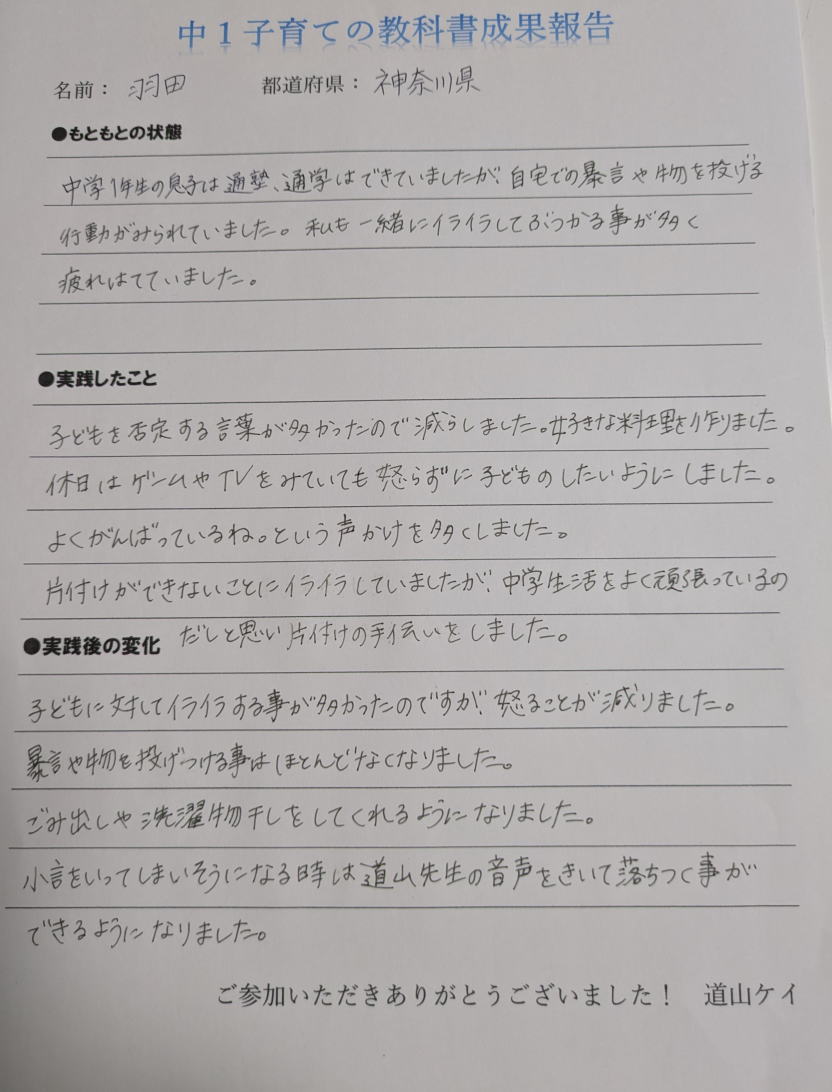 中１子育ての教科書成果報告
名前： 羽田 都道府県： 神奈川県
●もともとの状態
中学1年生の息子は通塾、通学はできていましたが、自宅での暴言や物を投げる
行動がみられていました。私も一緒にイライラしてぶつかる事が多く
疲れはてていました。
●実践したこと
子どもを否定する言葉が多かったので減らしました。好きな料理を作りました。
休日はゲームやTVをみていても怒らずに子どものしたいようにしました。
よくがんばっているね。という声かけを多くしました。
片付けができないことにイライラしていましたが、中学生活をよく頑張っているの
だしと思い片付けの手伝いをしました。
●実践後の変化
子どもに対してイライラする事が多かったのですが、怒ることが減りました。
暴言や物を投げつける事はほとんどなくなりました。
ごみ出しや洗濯物干しをしてくれるようになりました。
小言をいってしまいそうになる時は道山先生の音声をきいて落ちつく事が
できるようになりました。
ご参加いただきありがとうございました！ 道山ケイ